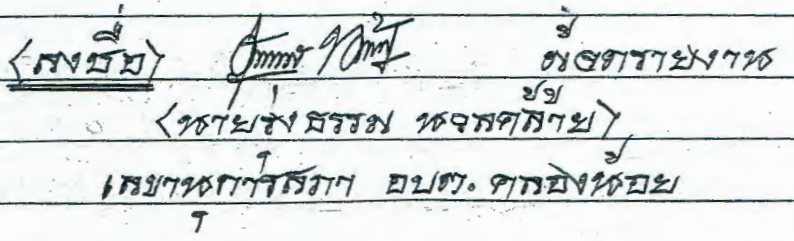 (ลงชื่อ) ผู้จดรายงาน
(นายรุ่งธรรม นวลคล้าย)
เลขานุการสภา อบต. คลองน้อย